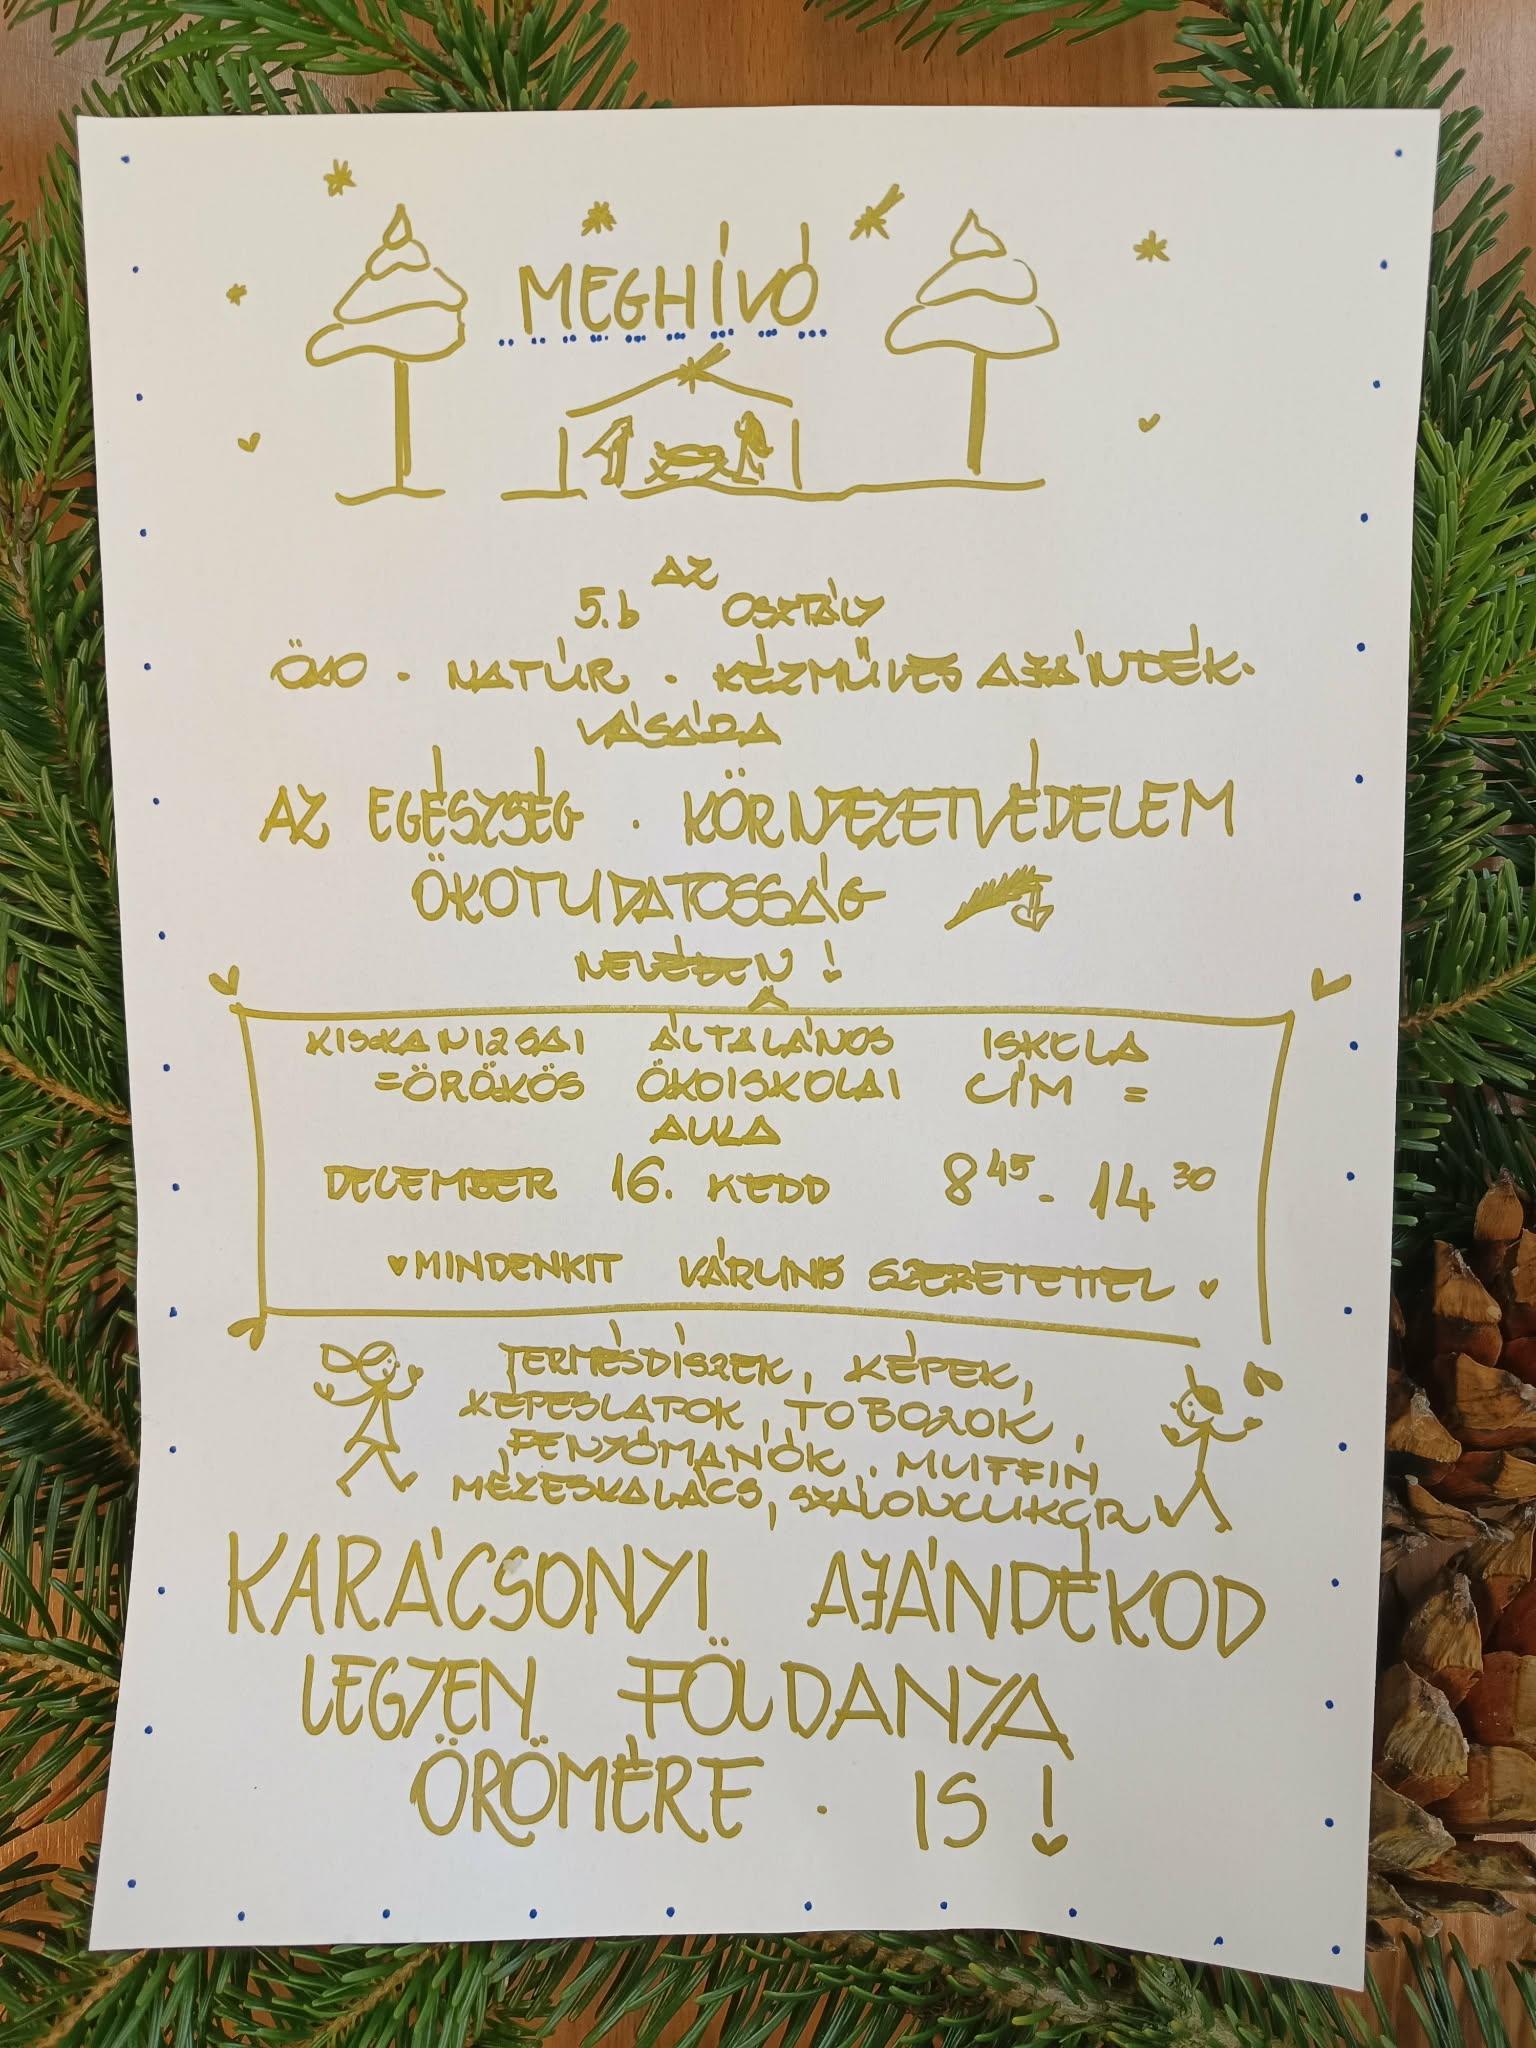 MEGHÍVÓ
AZ
5.b OSZTÁLY
ÖKO - NATÚR - KÉZMŰVES AJÁNDÉK-
VÁSÁRA
AZ EGÉSZSÉG - KÖRNYEZETVÉDELEM
ÖKOTUDATOSSÁG
NEVÉBEN!
KISKANIZSAI ÁLTALÁNOS ISKOLA
=ÖRÖKÖS ÖKOISKOLAI CÍM =
AULA
DECEMBER 16. KEDD 8 45 - 14 30
MINDENKIT VÁRUNK SZERETETTEL
TERMÉSDÍSZEK, KÉPEK,
KÉPESLAPOK, TOBOZOK,
FENYŐMANÓK, MUFFIN
MÉZESKALÁCS, SZALONCUKOR
KARÁCSONYI AJÁNDÉKOD
LEGYEN FÖLDANYA
ÖRÖMÉRE - IS!